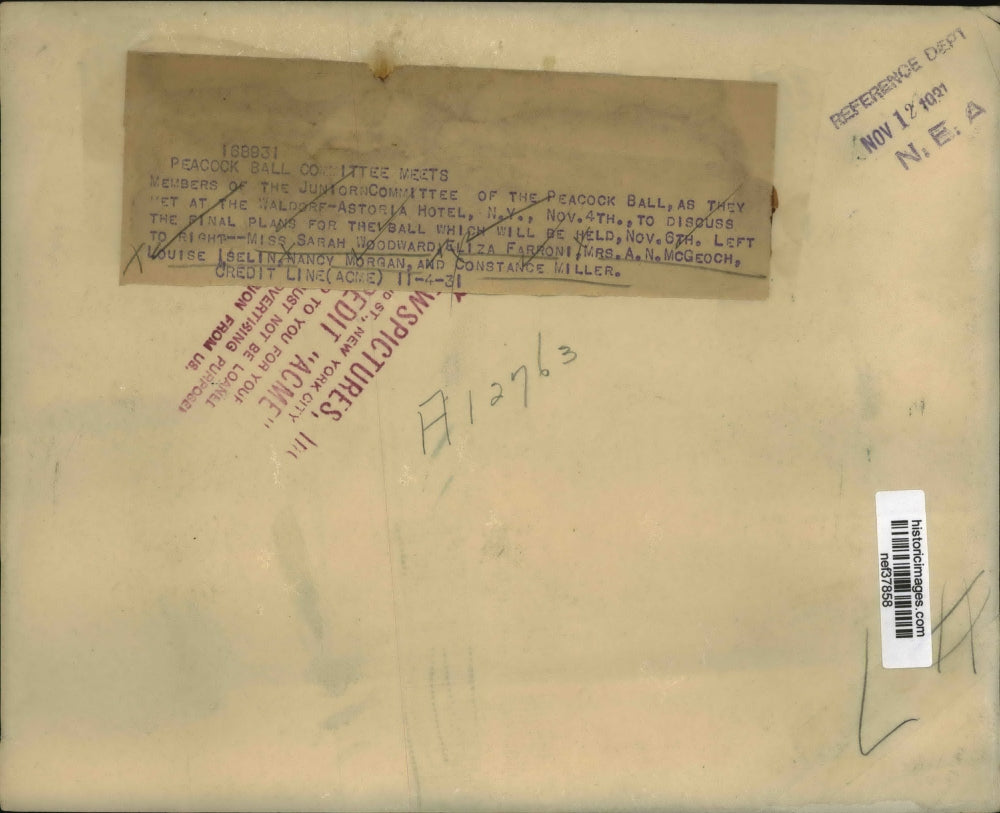 168931
PEACOCK BALL COMMITTEE MEETS
MEMBERS OF THE JUNIORNCOMMITTEE OF THE PEACOCK BALL, AS THEY
MET AT THE WALDORF-ASTORIA HOTEL, N.Y., NOV. 4TH., TO DISCUSS
THE FINAL PLANS FOR THE BALL WHICH WILL BE HELD, NOV. 6TH. LEFT
TO RIGHT--MISS SARAH WOODWARD, ELIZA FARRONI, MRS. A. N. MCGEOCH,
LOUISE ISELIN, NANCY MORGAN, AND CONSTANCE MILLER.
CREDIT LINE (ACME) 11-4-31
REFERENCE DEPT
NOV 12 1931
N. E. A
WSPICTURES, IN
ST., NEW YORK CITY
EDIT "ACME"
TO YOU FOR YOUR
UST NOT BE LOANED
VERTISING PURPOSES
ION FROM US.
A12763
historicimages.com
nef37858